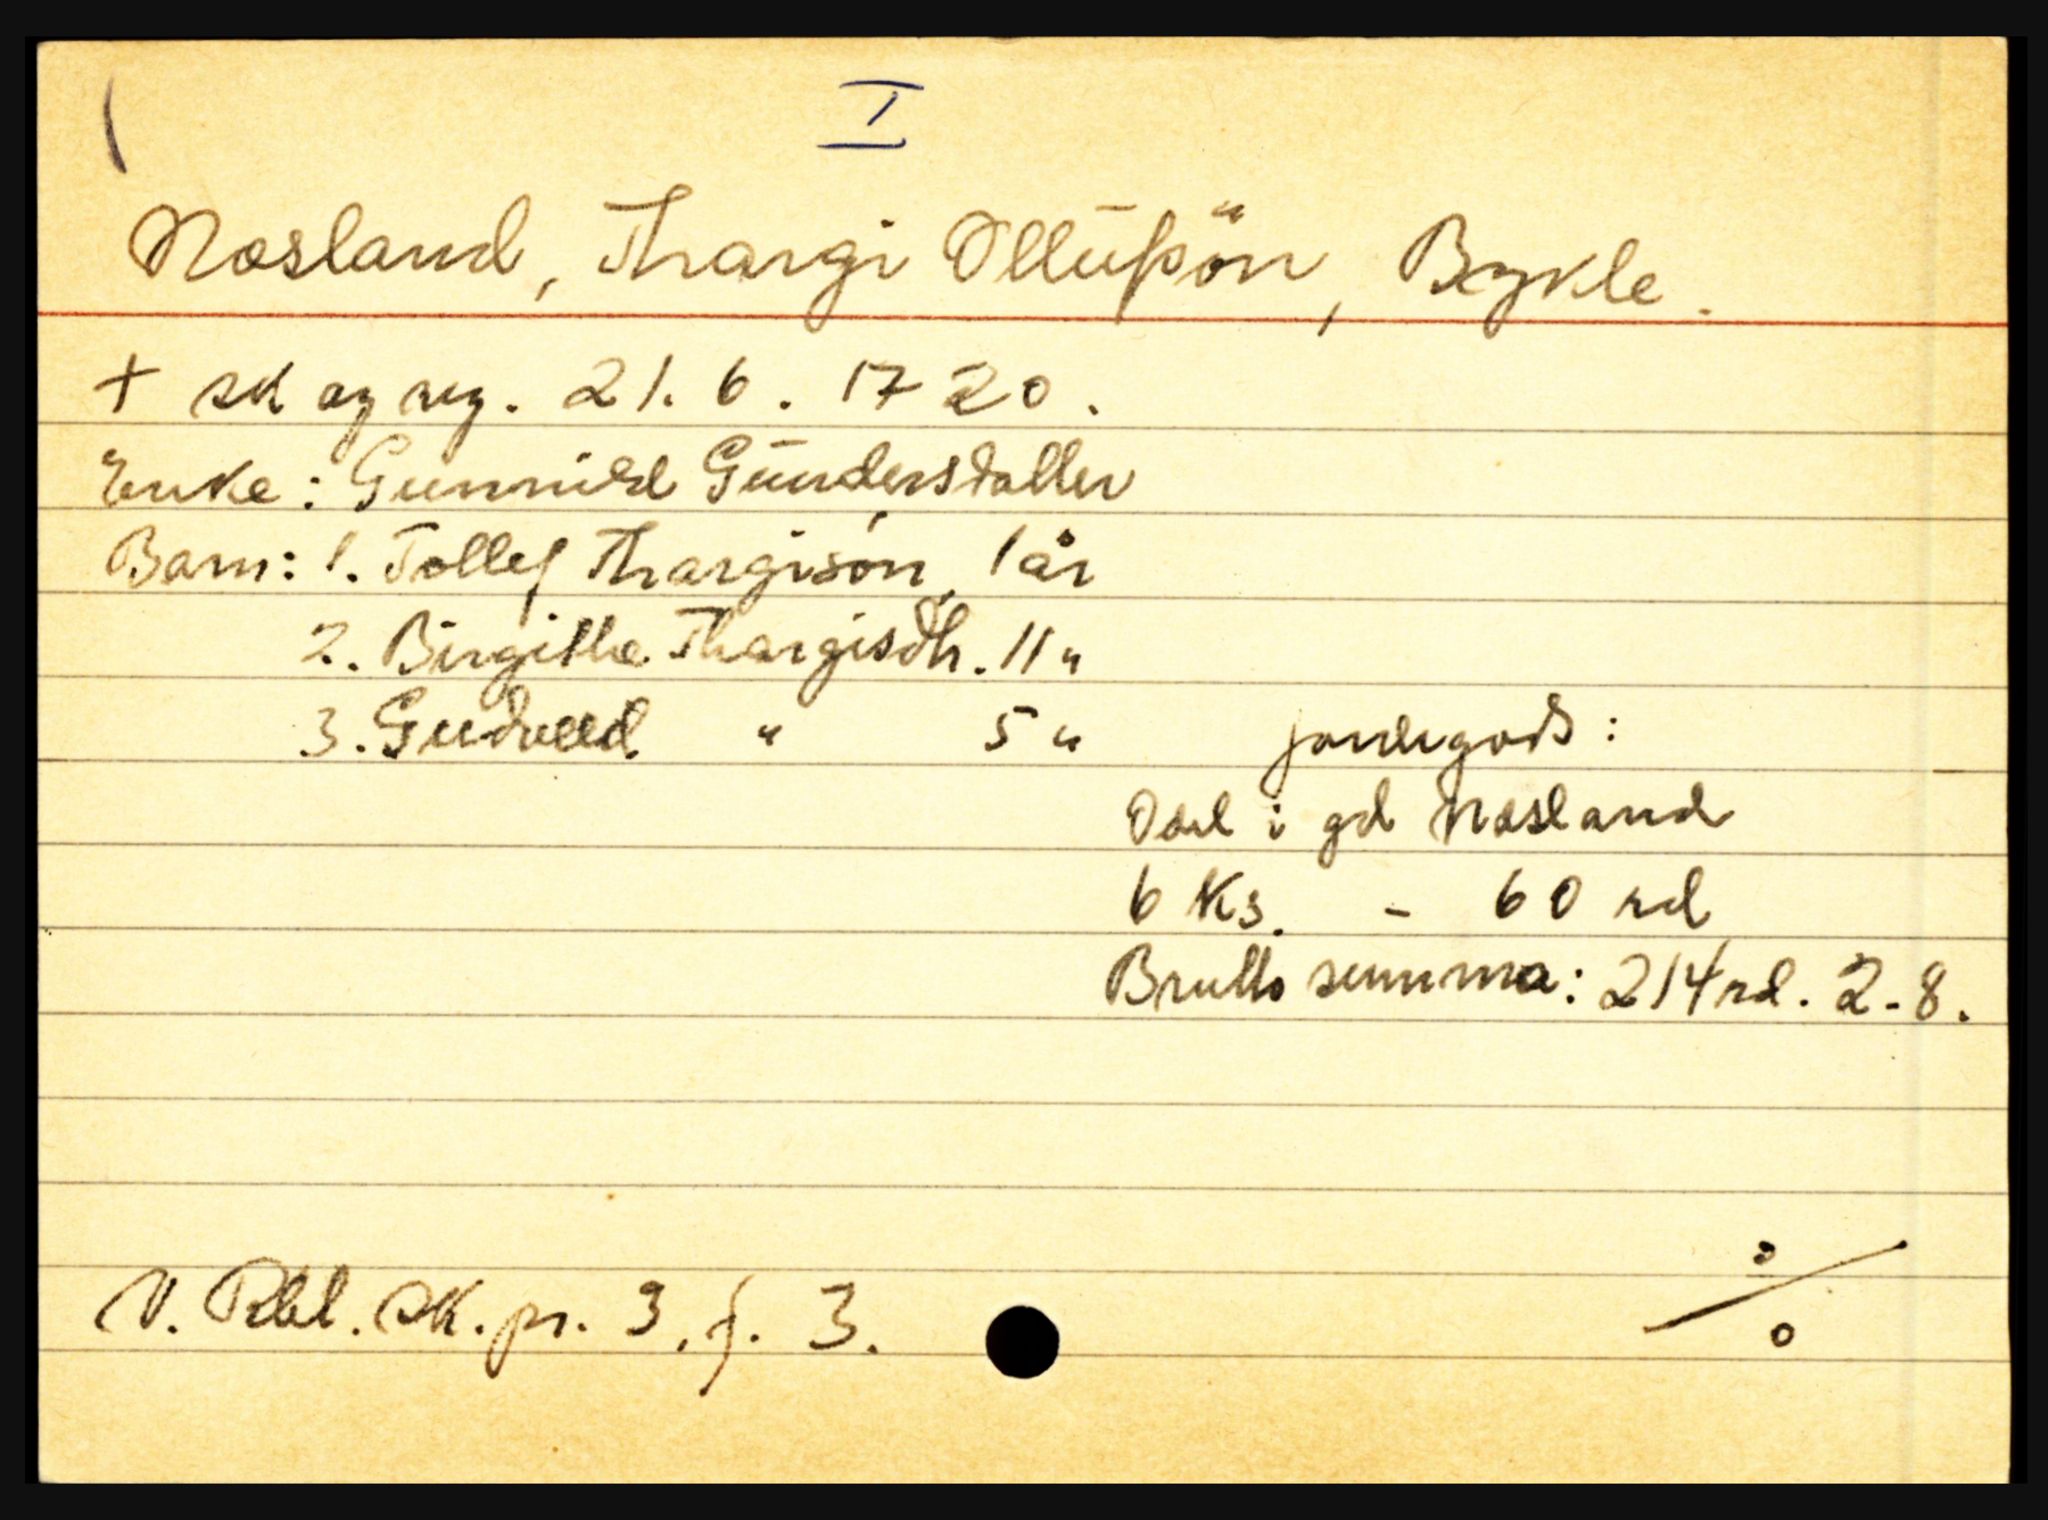 I
Nosland, Thargi Ollufsön, Bykle.
+ sk og reg. 21. 6. 1720.
Enke: Gunnild Gundersdatter
Barn: 1. Tollef Thargisón, 1 år
2. Birgithe Thargisdtr. 11 "
3. Gudveed " 5 "
jordegods:
Odel i gd Nosland
6 Ks. - 60 rd
Brutto summa: 214 rd. 2-8.
V. Rbl. sk. pr. 3, f. 3.